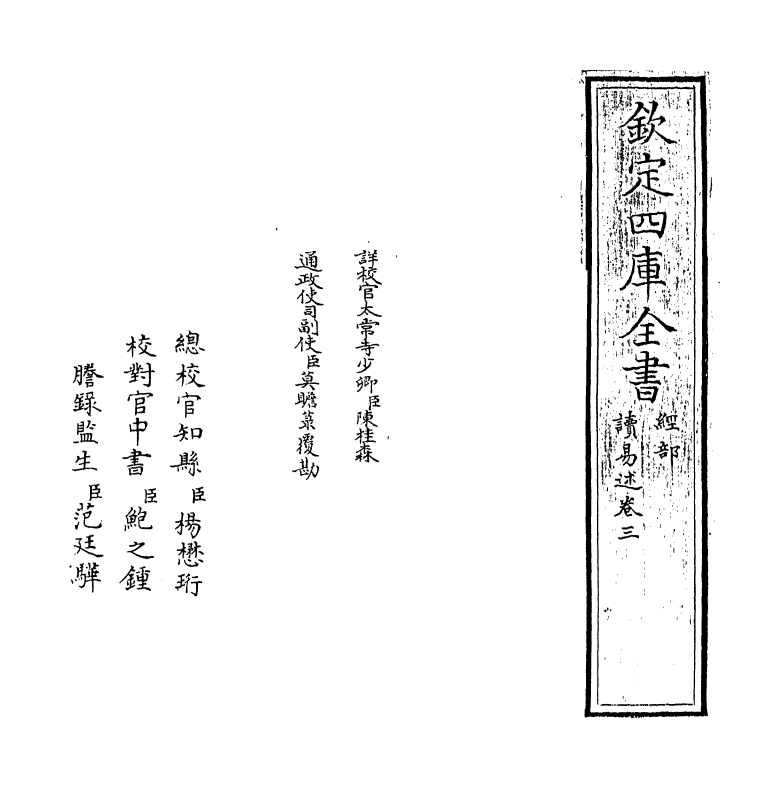 欽定四庫全書
經部
讀易述卷三
詳校官太常寺少卿臣陳桂森
通政使司副使臣莫瞻菉覆勘
總校官知縣臣楊懋珩
校對官中書臣鮑之鍾
謄錄監生臣范廷驊